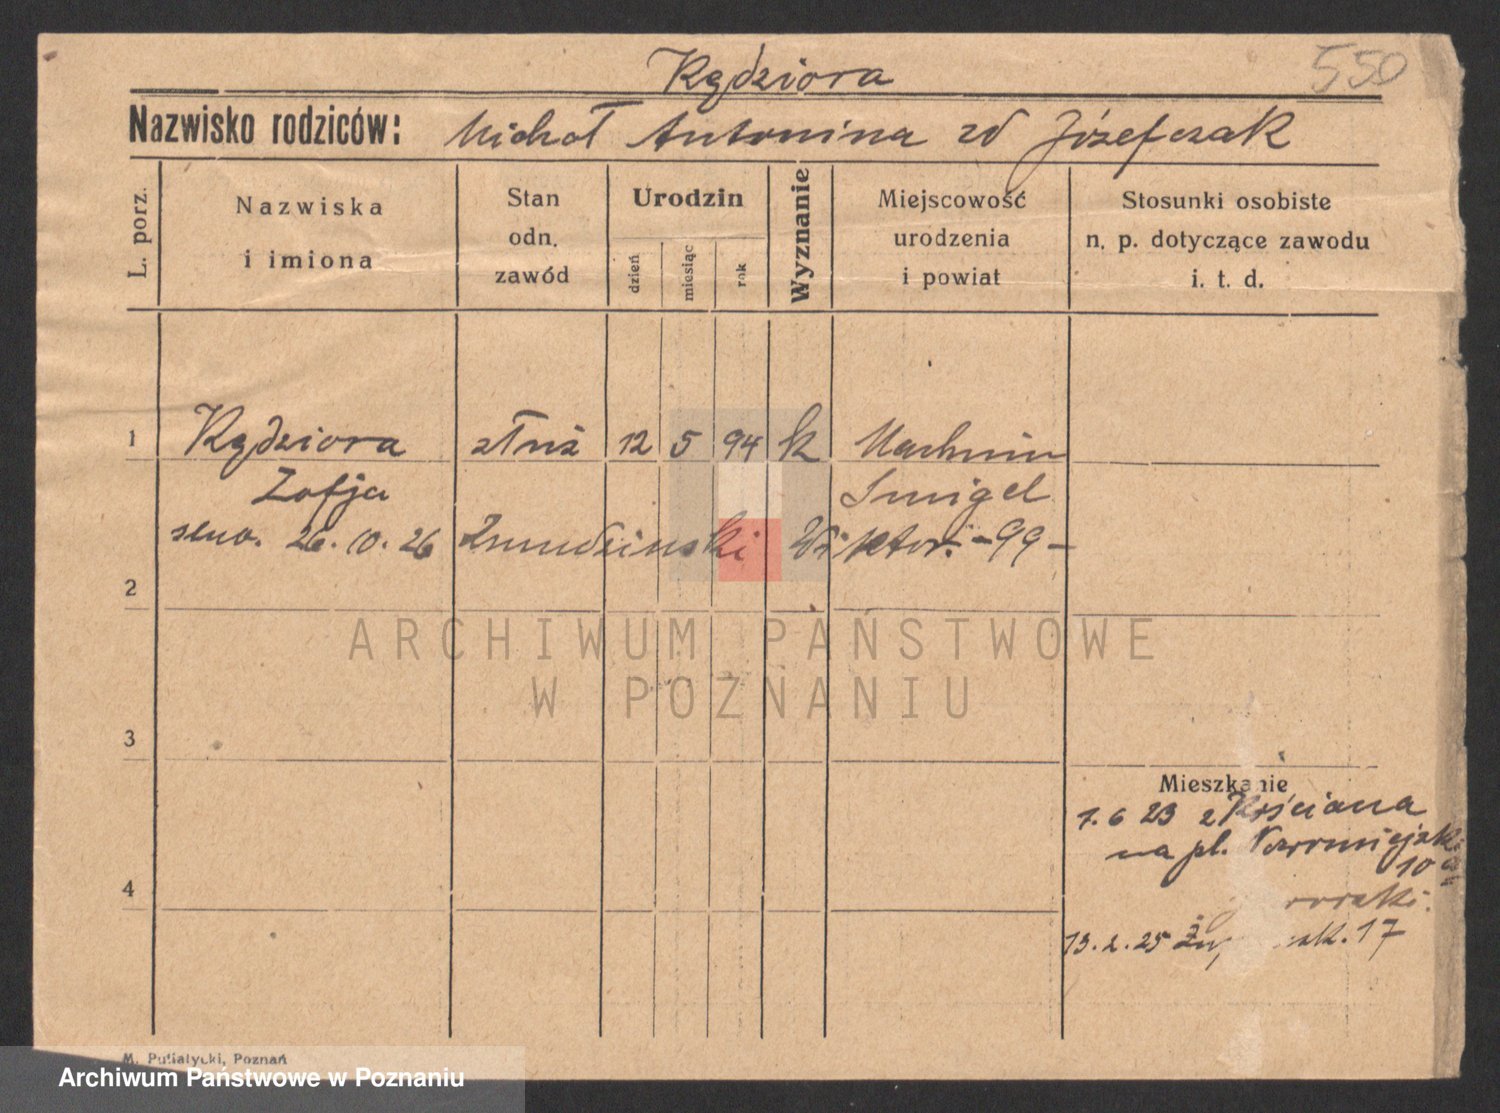 550
Kędziora
Nazwisko rodziców: Michał Antonina zd Józefczak
L. porz.
Nazwiska
i imiona
Stan
odn.
zawód
Urodzin
dzień
miesiąc
rok
Wyznanie
Miejscowość
urodzenia
i powiat
Stosunki osobiste
n. p. dotyczące zawodu
i. t. d.
1 Kędziora służ 12 5 94 k Machcin
Zofja Smigel
26. 10. 26 Zmudzinski Wiktor. -99-
2
3
4
Mieszkanie
1. 6 23 z Kościana
na pl. Nowomiejski
10
13. 2. 25 17
ARCHIWUM PAŃSTWOWE
W POZNANIU
M. Putiatycki, Poznań
Archiwum Państwowe w Poznaniu